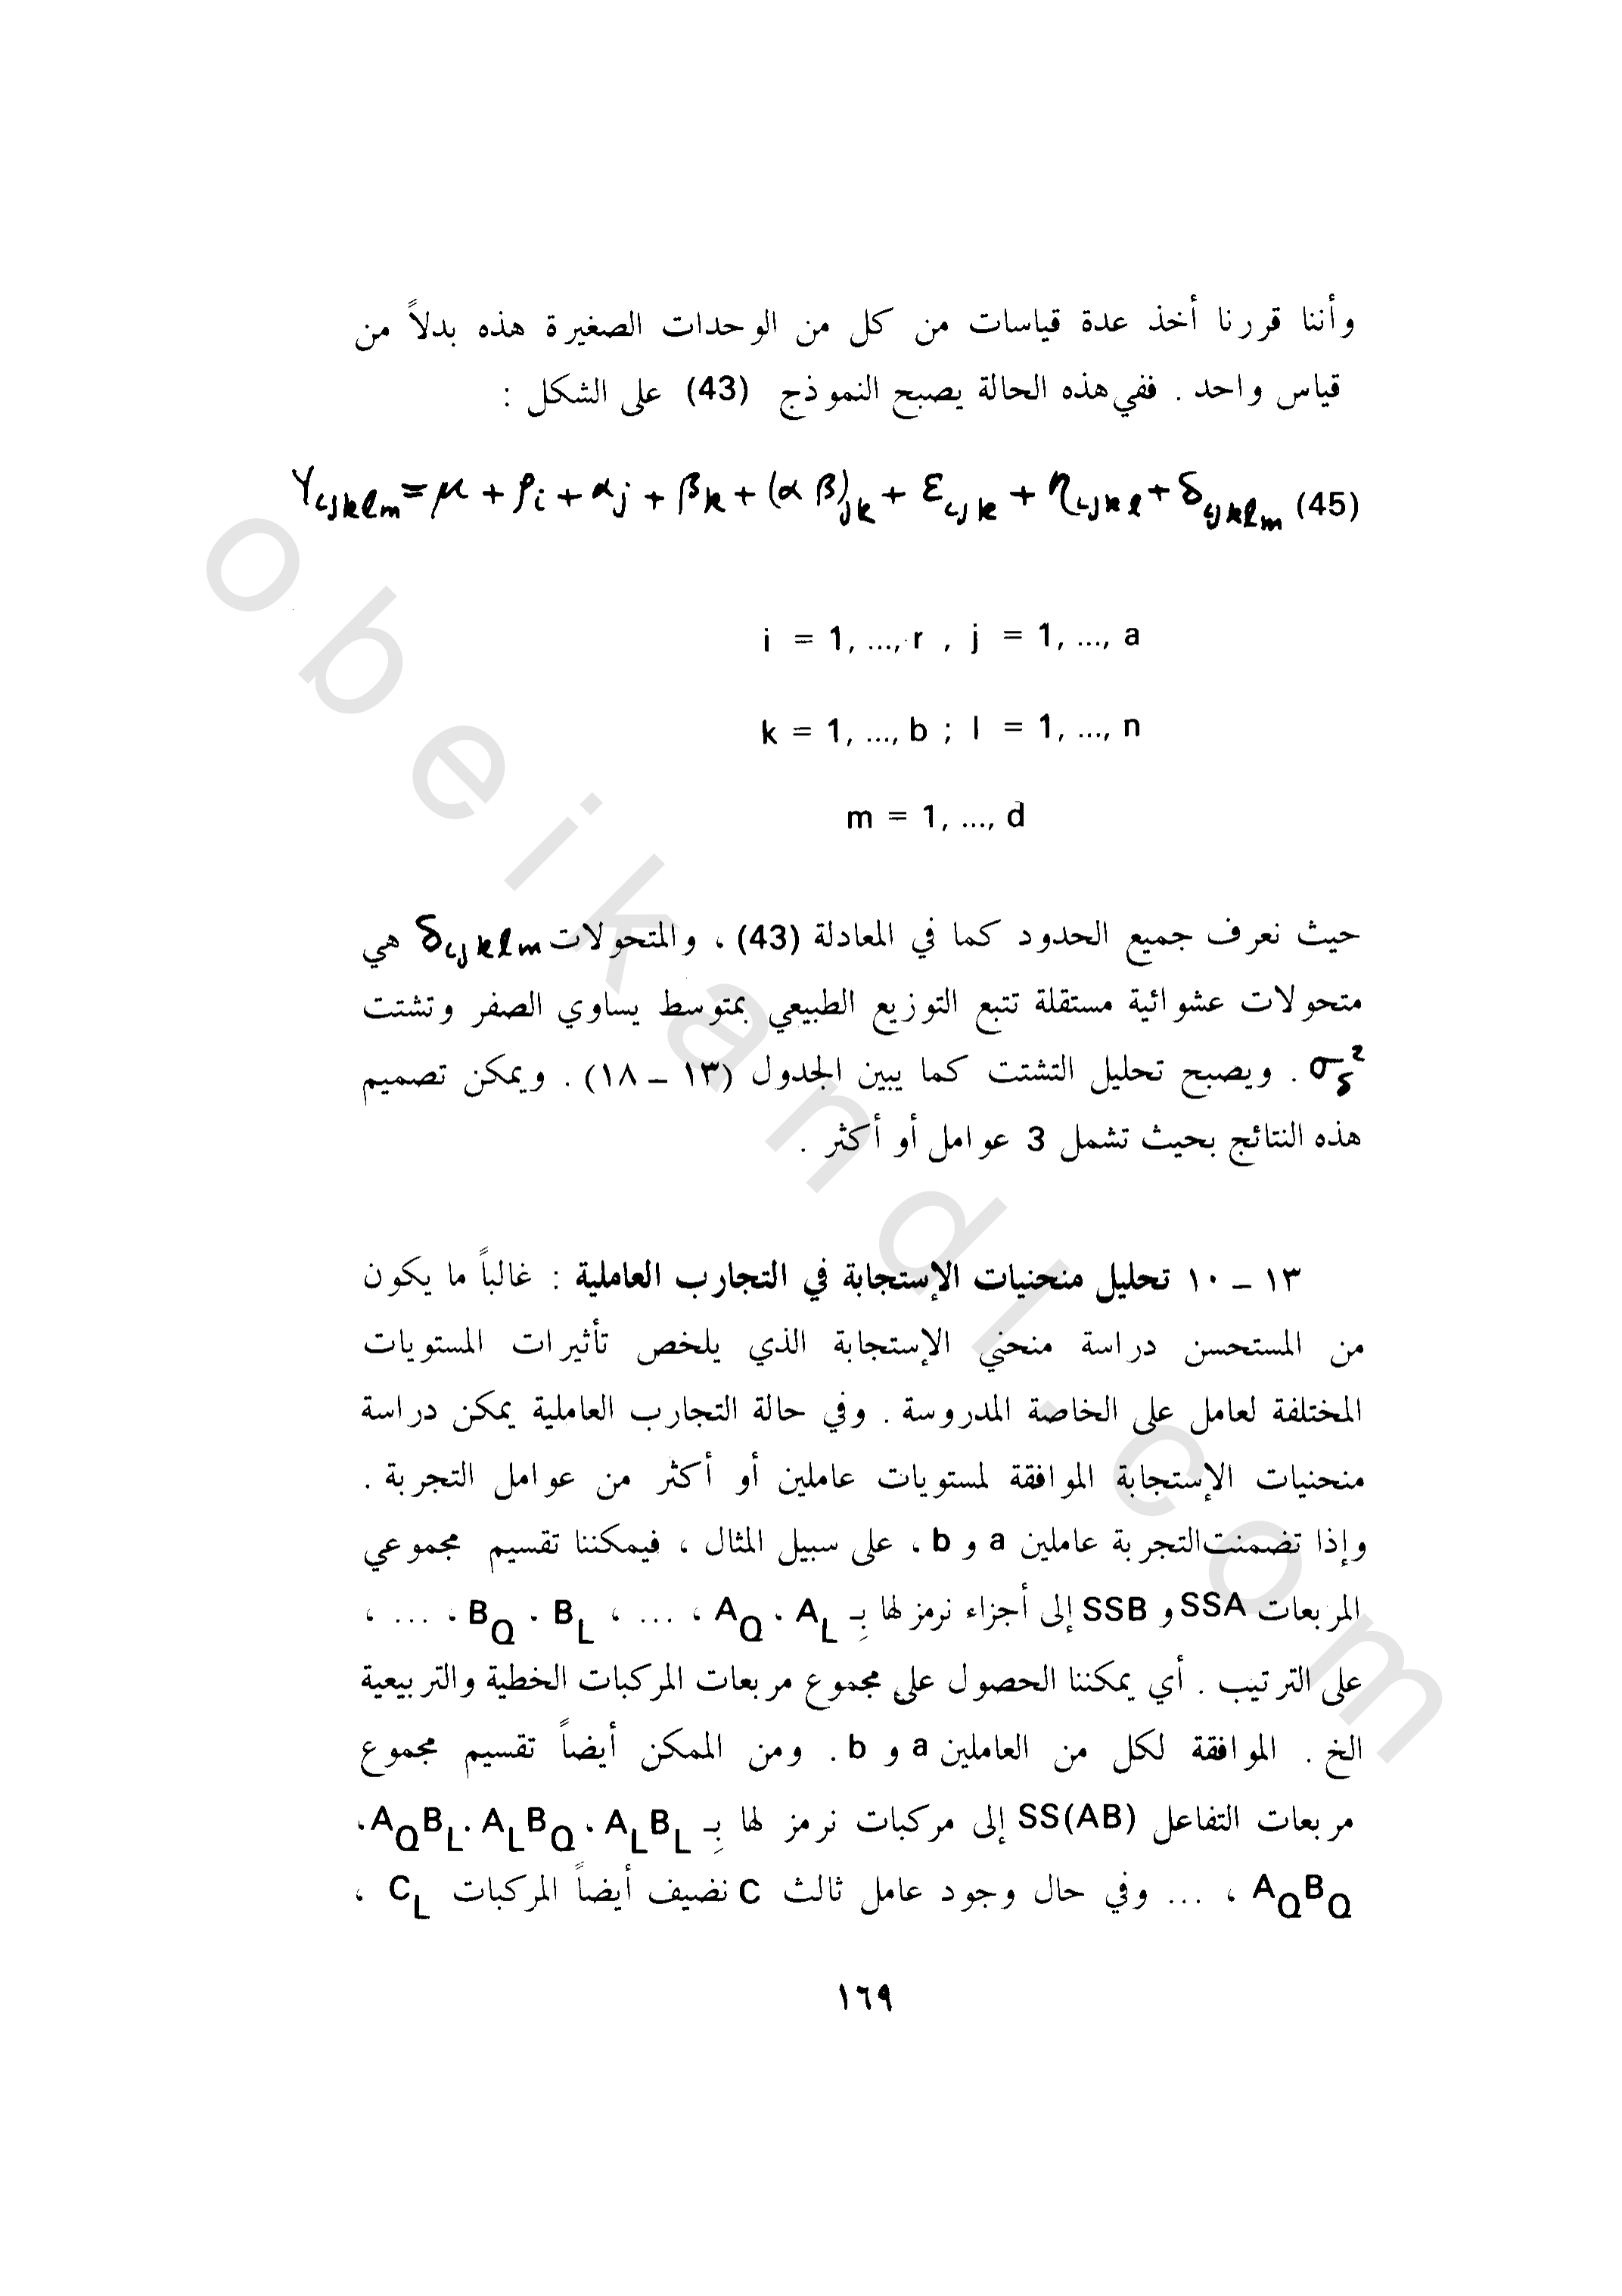 وأننا قررنا أخذ عدة قياسات من كل من الوحدات الصغيرة هذه بدلاً من
قياس واحد . ففي هذه الحالة يصبح النموذج (43) على الشكل :
Y_{ijklm} = μ + ρ_i + α_j + β_k + (αβ)_{jk} + ε_{ijk} + η_{ijkl} + δ_{ijklm} (45)
i = 1, ..., r , j = 1, ..., a
k = 1, ..., b ; l = 1, ..., n
m = 1, ..., d
حيث نعرف جميع الحدود كما في المعادلة (43) ، والمتحولات δ_{ijklm} هي
متحولات عشوائية مستقلة تتبع التوزيع الطبيعي بمتوسط يساوي الصفر وتشتت
σ_δ^2 . ويصبح تحليل التشتت كما يبين الجدول (١٣ – ١٨) . ويمكن تصميم
هذه النتائج بحيث تشمل 3 عوامل أو أكثر .
١٣ – ١٠ تحليل منحنيات الإستجابة في التجارب العاملية : غالباً ما يكون
من المستحسن دراسة منحني الإستجابة الذي يلخص تأثيرات المستويات
المختلفة لعامل على الخاصة المدروسة . وفي حالة التجارب العاملية يمكن دراسة
منحنيات الإستجابة الموافقة لمستويات عاملين أو أكثر من عوامل التجربة .
وإذا تضمنت التجربة عاملين a و b ، على سبيل المثال ، فيمكننا تقسيم مجموعي
المربعات SSA و SSB إلى أجزاء نرمز لها بِـ A_L ، A_Q ، ... ، B_L ، B_Q ، ... ،
على الترتيب . أي يمكننا الحصول على مجموع مربعات المركبات الخطية والتربيعية
الخ . الموافقة لكل من العاملين a و b . ومن الممكن أيضاً تقسيم مجموع
مربعات التفاعل SS(AB) إلى مركبات نرمز لها بِـ A_L B_L ، A_L B_Q ، A_Q B_L ،
A_Q B_Q ، ... وفي حال وجود عامل ثالث C نضيف أيضاً المركبات C_L ،
١٦٩
obeikandl.com